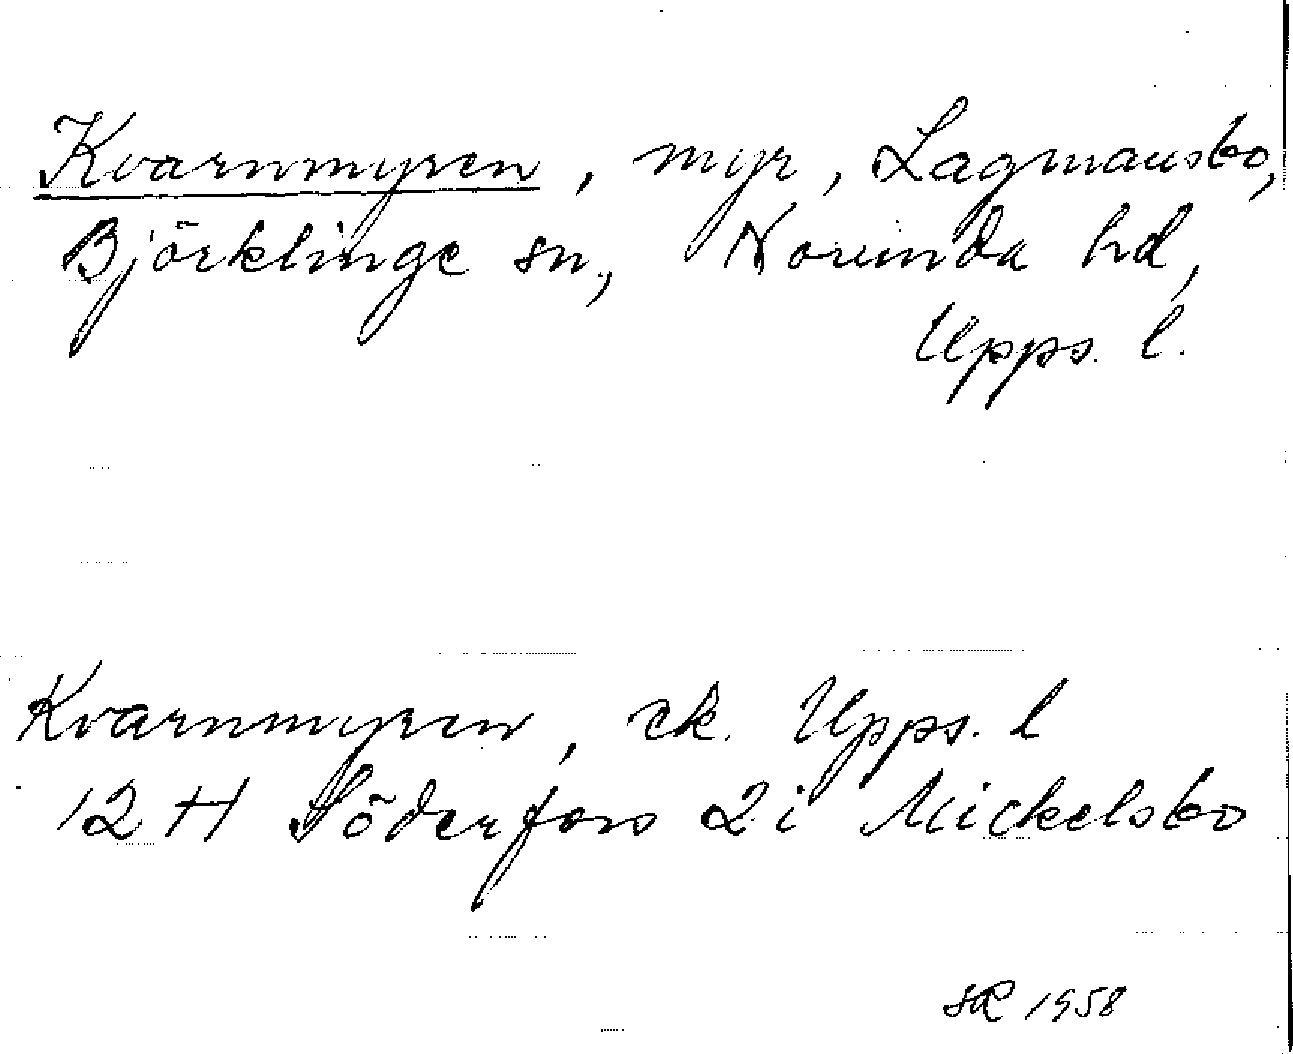 Kvarnmyren, myr, Lagmansbo,
Björklinge sn, Norunda hd,
Upps. l.
Kvarnmyren, ek. Upps. l
12 H Söderfors 2 i Mickelsbo
SR 1958